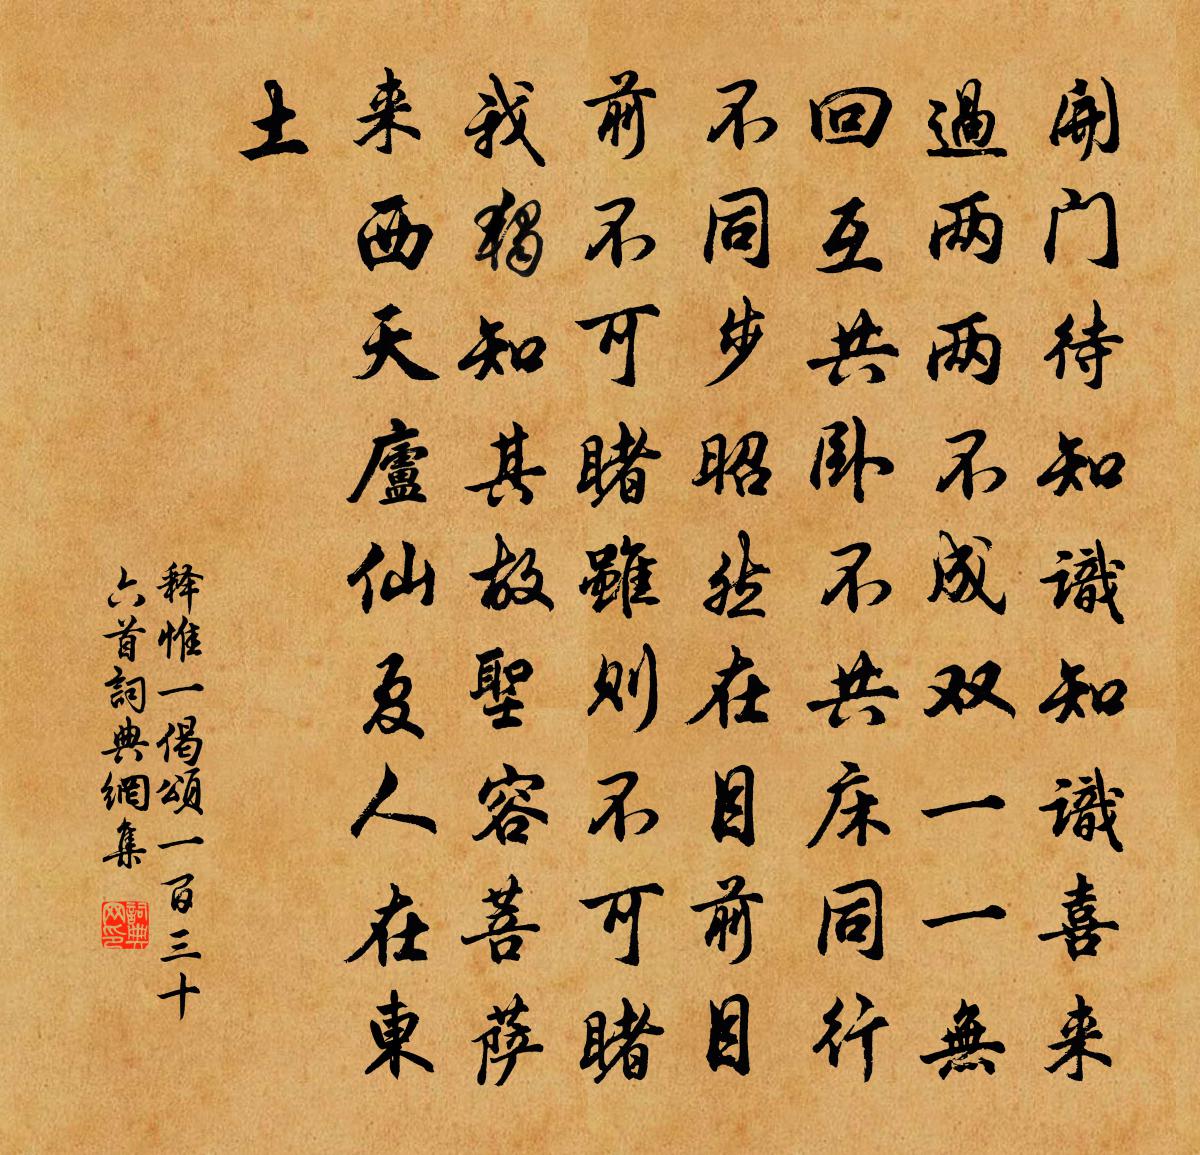 開门待知識知識喜来
過两两不成双一一無
回互共卧不共床同行
不同步昭然在目前目
前不可睹雖则不可睹
我獨知其故聖容菩薩
来西天廬仙夏人在東
土
释惟一偈頌一百三十
六首詞典網集
詞典
网印